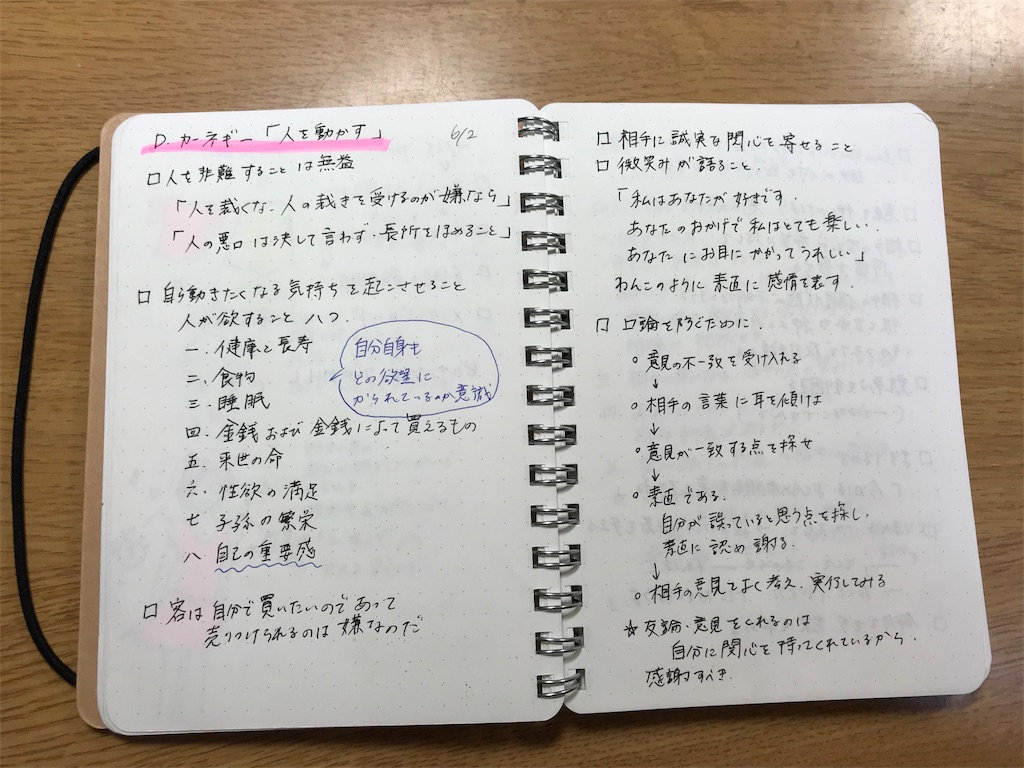 D. カーネギー「人を動かす」 6/2
□人を非難することは無益
「人を裁くな.人の裁きを受けるのが嫌なら」
「人の悪口は決して言わず.長所をほめること」
□ 自ら動きたくなる気持ちを起こさせること
人が欲すること 八つ.
一.健康と長寿
二、食物
三.睡眠
四.金銭および金銭によって買えるもの
五.来世の命
六.性欲の満足
七 子孫の繁栄
八 自己の重要感
自分自身も
どの欲望に
かられているのか意識
□ 客は自分で買いたいのであって
売りつけられるのは嫌なのだ
□ 相手に誠実な関心を寄せること
□ 微笑みが語ること
「私はあなたが好きです
あなたのおかげで私はとても楽しい.
あなたにお目にかかってうれしい」
わんこのように素直に感情を表す.
□ 口論を防ぐために.
○ 意見の不一致を受け入れる
↓
○ 相手の言葉に耳を傾けよ
↓
○ 意見が一致する点を探せ
↓
○ 素直である.
自分が誤っていると思う点を探し.
素直に認め謝る.
↓
○ 相手の意見をよく考え.実行してみる
☆ 反論.意見をくれるのは
自分に関心を持ってくれているから.
感謝すべき.